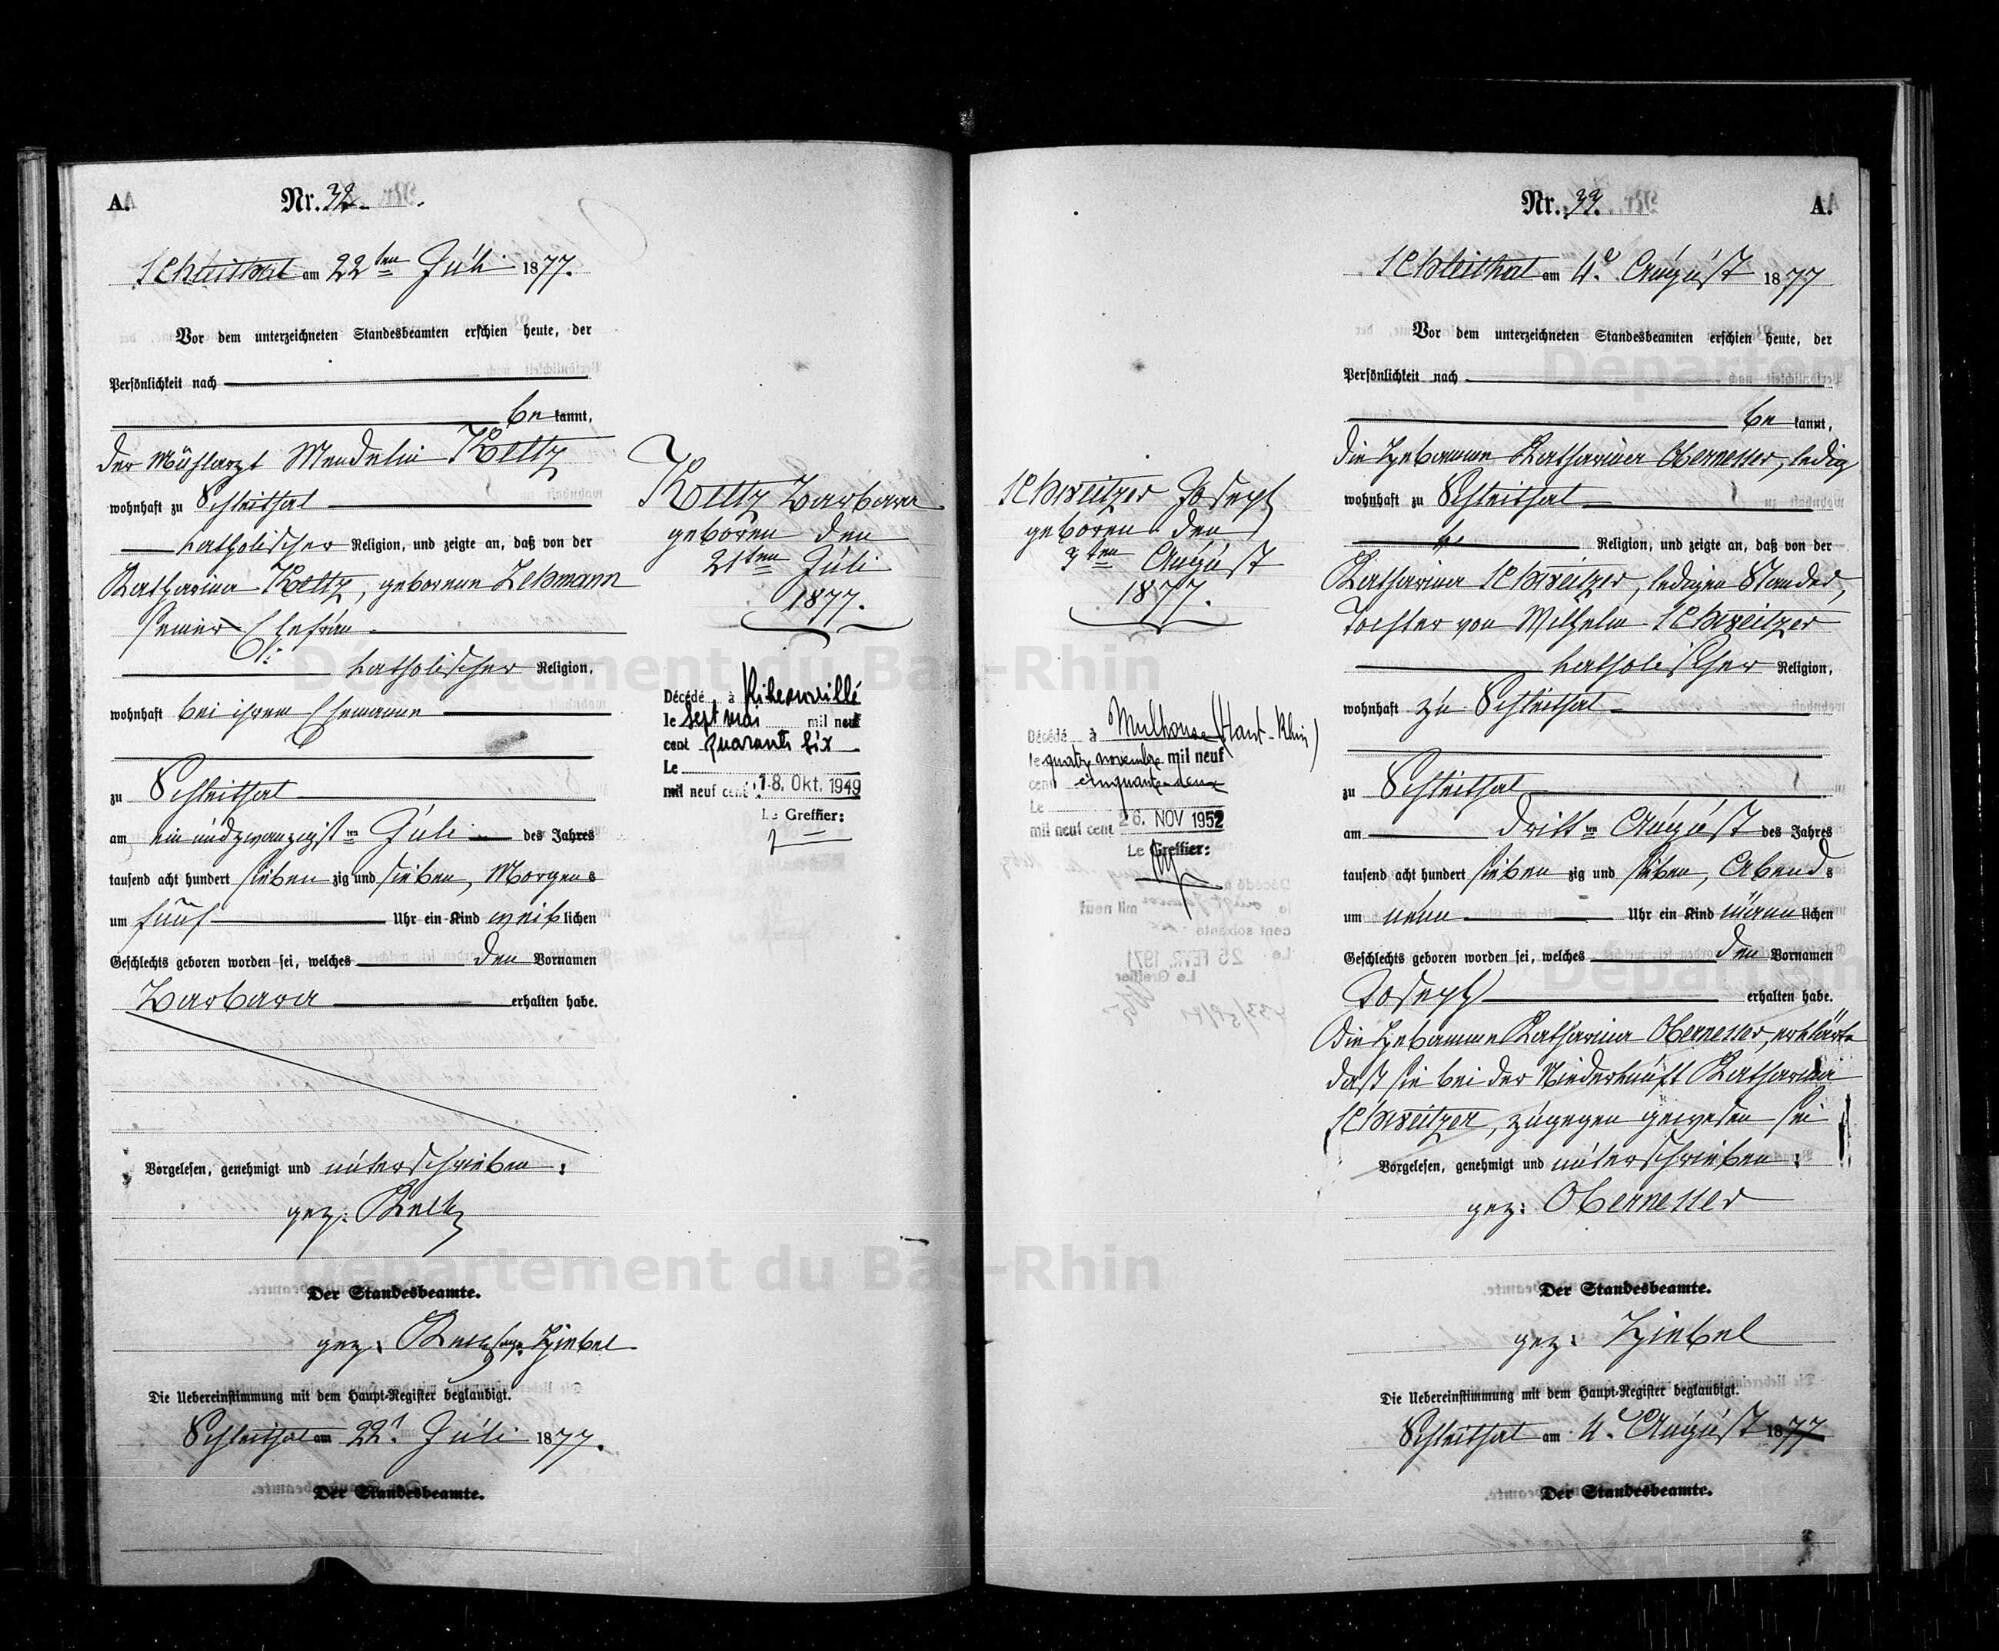 A. Nr. 32.
Schleithal am 22ten Juli 1877.
Vor dem unterzeichneten Standesbeamten erschien heute, der
Persönlichkeit nach
be kannt,
der Wendelin
wohnhaft zu Schleithal
katholischer Religion, und zeigte an, daß von der
Katharina geborenen Lehmann
seiner Ehefrau
katholischer Religion,
wohnhaft bei ihrem Ehemanne
zu Schleithal
am ein und zwanzigsten Juli des Jahres
tausend acht hundert sieben zig und sieben, Morgens
um fünf Uhr ein Kind weib lichen
Geschlechts geboren worden sei, welches den Vornamen
Barbara erhalten habe.
Vorgelesen, genehmigt und unterschrieben:
gez:
Der Standesbeamte.
gez:
Die Uebereinstimmung mit dem Haupt-Register beglaubigt.
Schleithal am 22t Juli 1877.
Der Standesbeamte.
Barbara
geboren den
21ten Juli
1877.
Décédé à Ribeauvillé
le sept mai mil neuf
cent quarante six
Le 18. Okt. 1949
mil neuf cent
Le Greffier:
Schweitzer Joseph
geboren den
3ten August
1877.
Décédé à Mulhouse (Haut-Rhin)
le quatre novembre mil neuf
cent cinquante-deux
Le 26. NOV 1952
mil neuf cent
Le Greffier:
Nr. 33. A.
Schleithal am 4t August 1877
Vor dem unterzeichneten Standesbeamten erschien heute, der
Persönlichkeit nach
be kannt,
die Hebamme Katharina Obernesser, ledig
wohnhaft zu Schleithal
Religion, und zeigte an, daß von der
Katharina Schweitzer, ledigen Standes,
Tochter von Wilhelm Schweitzer
katholischer Religion,
wohnhaft zu Schleithal
zu Schleithal
am dritten August des Jahres
tausend acht hundert sieben zig und sieben, Abends
um neun Uhr ein Kind männ lichen
Geschlechts geboren worden sei, welches den Vornamen
Joseph erhalten habe.
Die Hebamme Katharina Obernesser, erklärte
daß sie bei der Niederkunft Katharina
Schweitzer, zugegen gewesen sei
Vorgelesen, genehmigt und unterschrieben:
gez: Obernesser
Der Standesbeamte.
gez:
Die Uebereinstimmung mit dem Haupt-Register beglaubigt.
Schleithal am 4t August 1877
Der Standesbeamte.
Département du Bas-Rhin
Département du Bas-Rhin